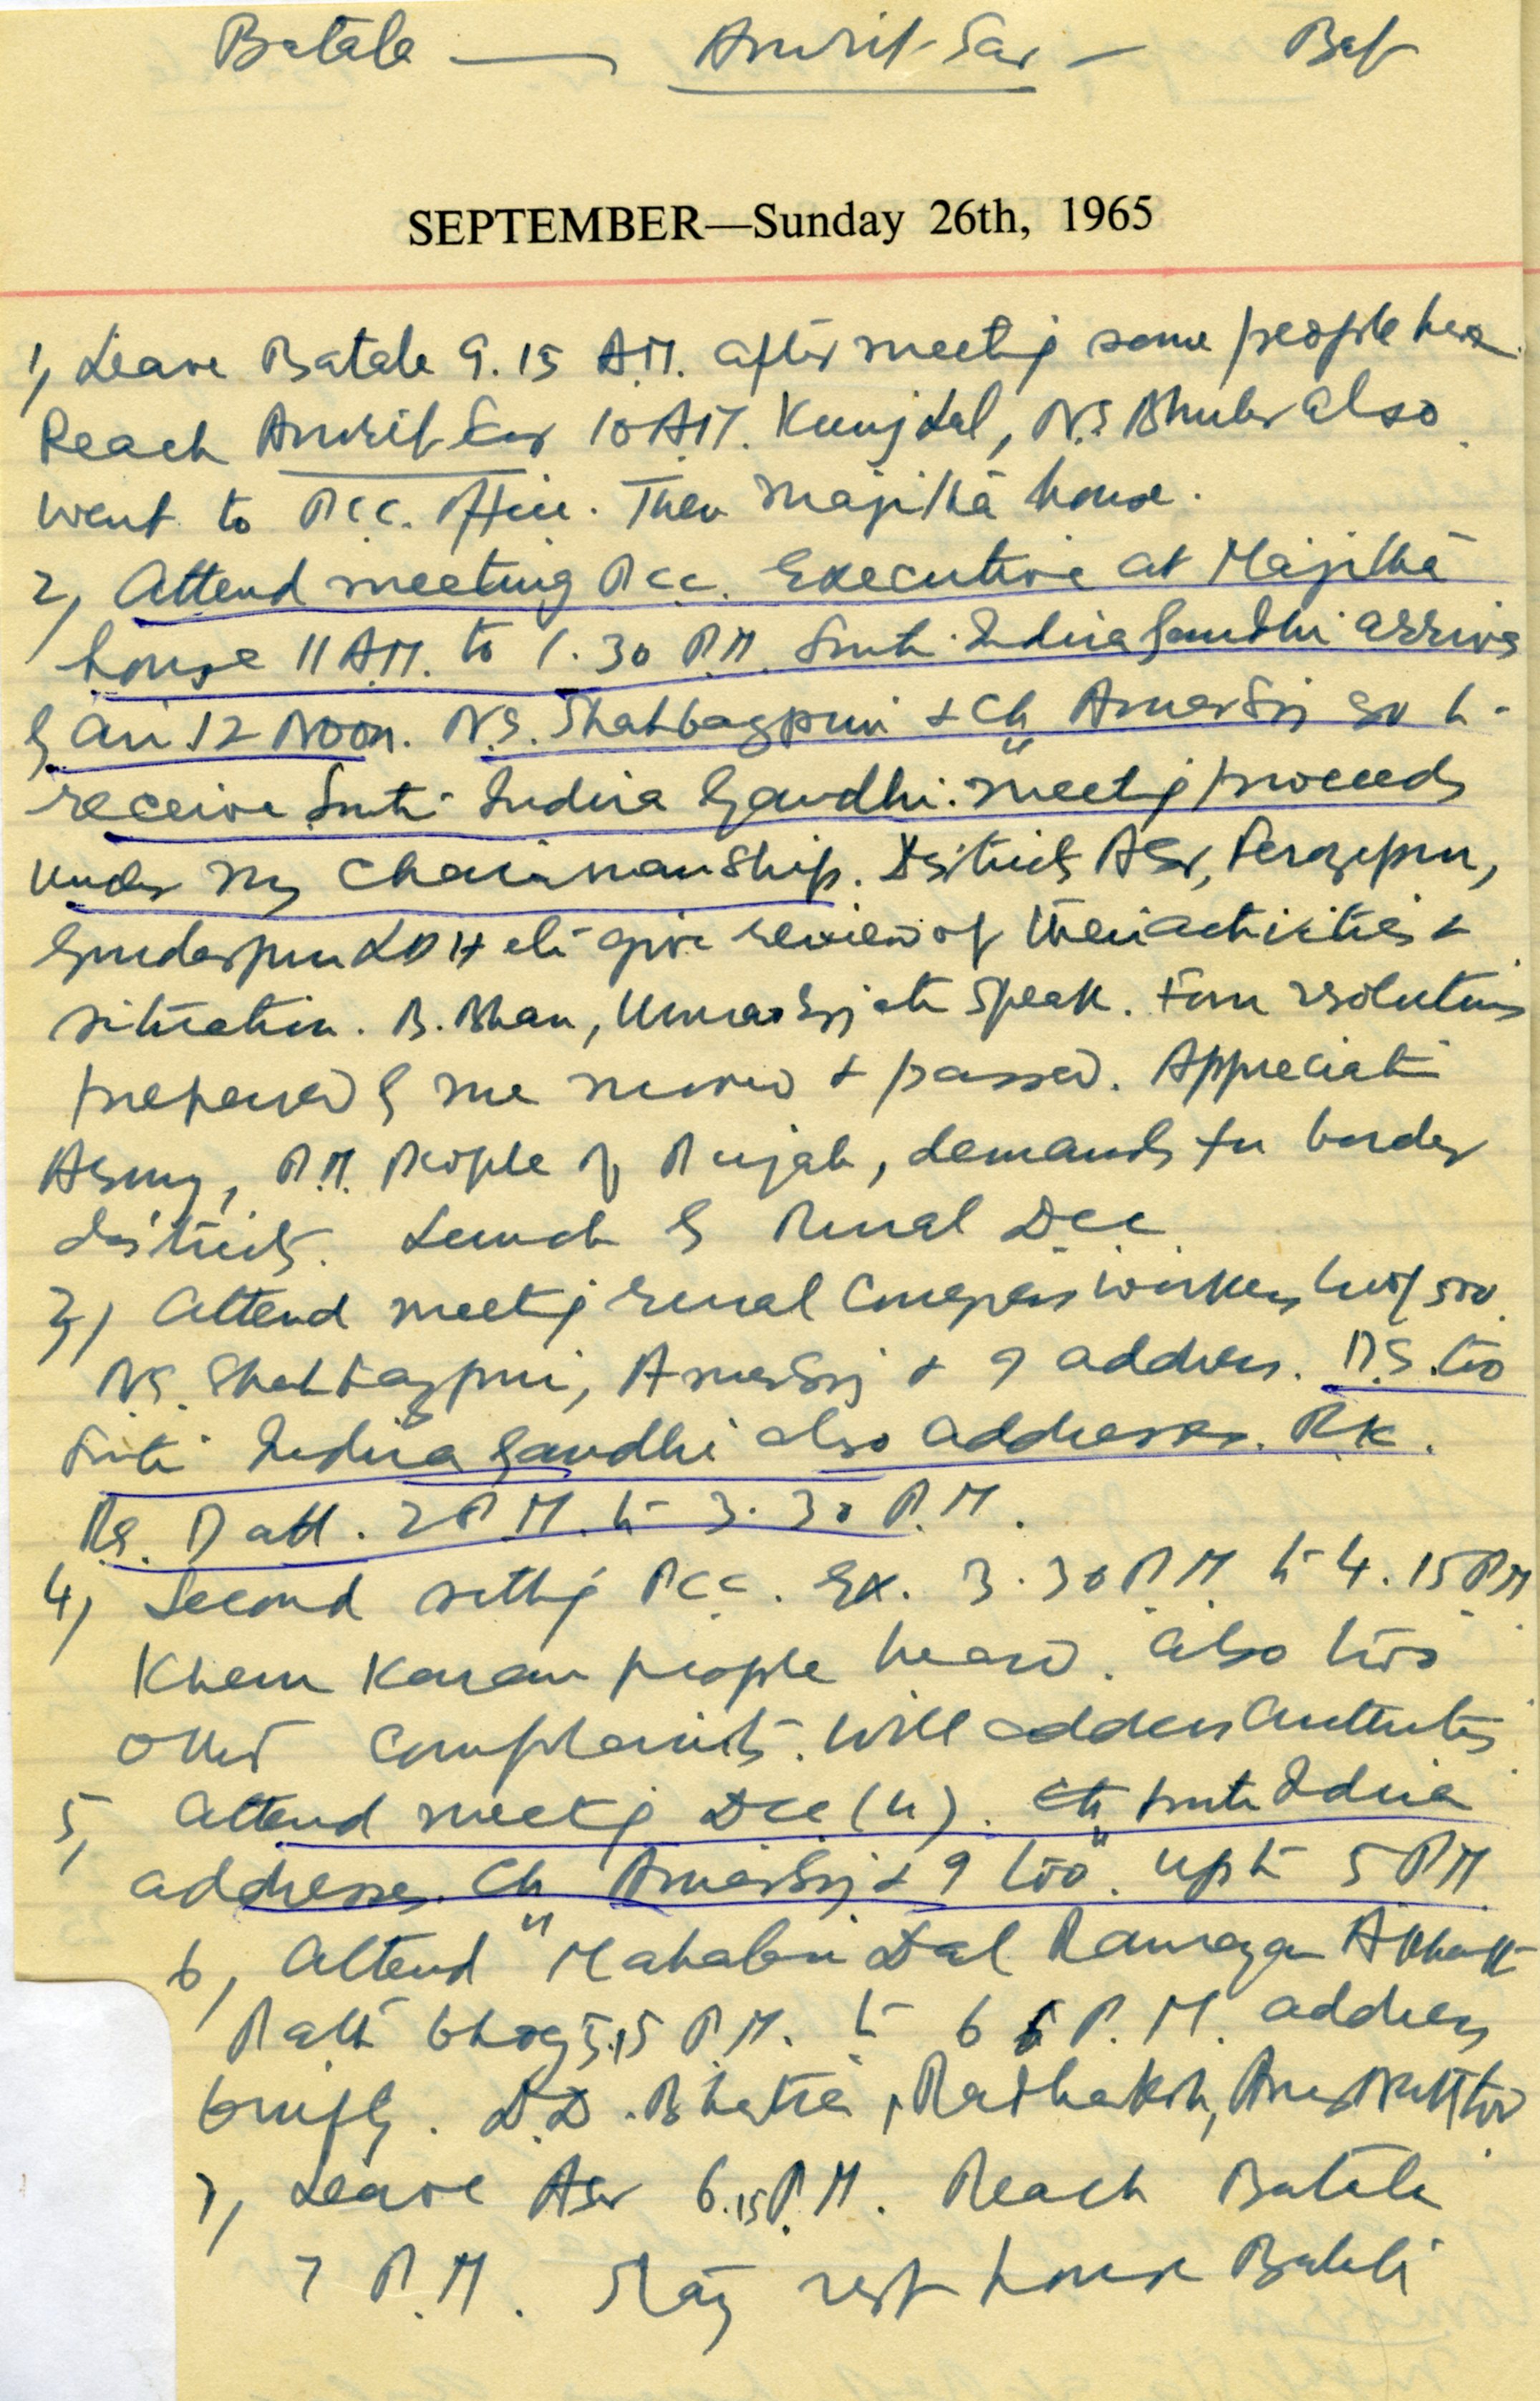 Batala — Amrit-Sar — Bat
SEPTEMBER—Sunday 26th, 1965
1, Leave Batala 9.15 A.M. after meeting some people here.
Reach Amrit Sar 10 A.M. Kunj Lal, also
went to P.C.C. Office. Then Majithā house.
2, Attend meeting P.C.C. Executive at Majithā
house 11 A.M. to 1.30 P.M. Smti Indira Gandhi arrives
by air 12 Noon. N.S. Shahbazpuri + Ch Amar Sing go to
receive Smti Indira Gandhi. Meeting proceeds
under my chairmanship. Districts ASr, Ferozepur,
Gurdaspur LDH etc give review of their activities &
situation. B. Bhan, Umrao Sing etc speak. Four resolutions
prepared by me moved & passed. Appreciati
Army, P.M. People of Punjab, demands for border
districts. Lunch by Rural Dcc
3, Attend meeting rural Congress workers 500.
N.S. Shahbazpuri, Amar Sing + I address. too
Smti Indira Gandhi also addresses. R.K.
Datt. 2 P.M. to 3.30 P.M.
4, Second sitting P.C.C. Ex. 3.30 P.M to 4.15 PM
Khem Karan people heard. Also two
other complaints. Will address authorities
5, Attend meeting Dcc (U). Smti Indira
addresses. Ch Amar Sing & I too. upto 5 PM
6, Attend Mahabir Dal Ramayan Akhand
Path bhog 5.15 P.M. to 6 P.M. address
briefly. D.D. Bhatia, too
7, Leave Asr 6.15 P.M. Reach Batala
7 P.M. Stay rest house Batala